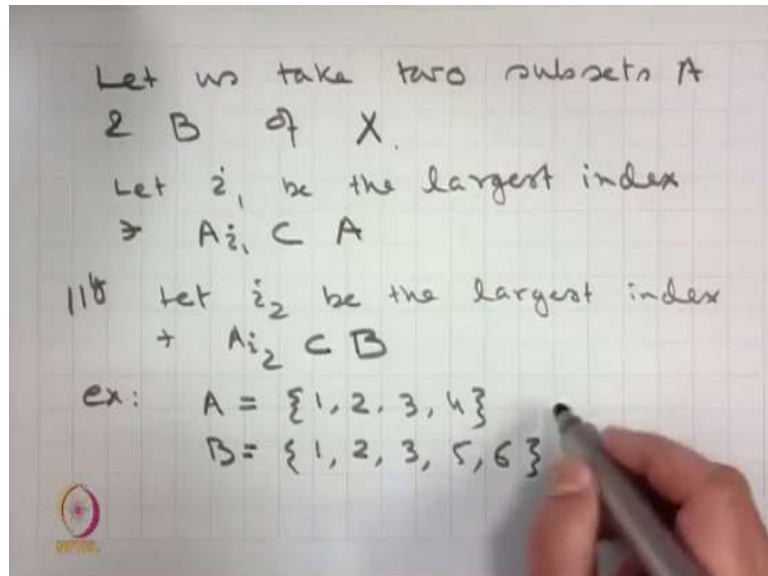 Let us take two subsets A
& B of X.
Let i₁ be the largest index
∋ Ai₁ ⊂ A
111ly Let i₂ be the largest index
∋ Ai₂ ⊂ B
ex: A = {1, 2, 3, 4}
B = {1, 2, 3, 5, 6}